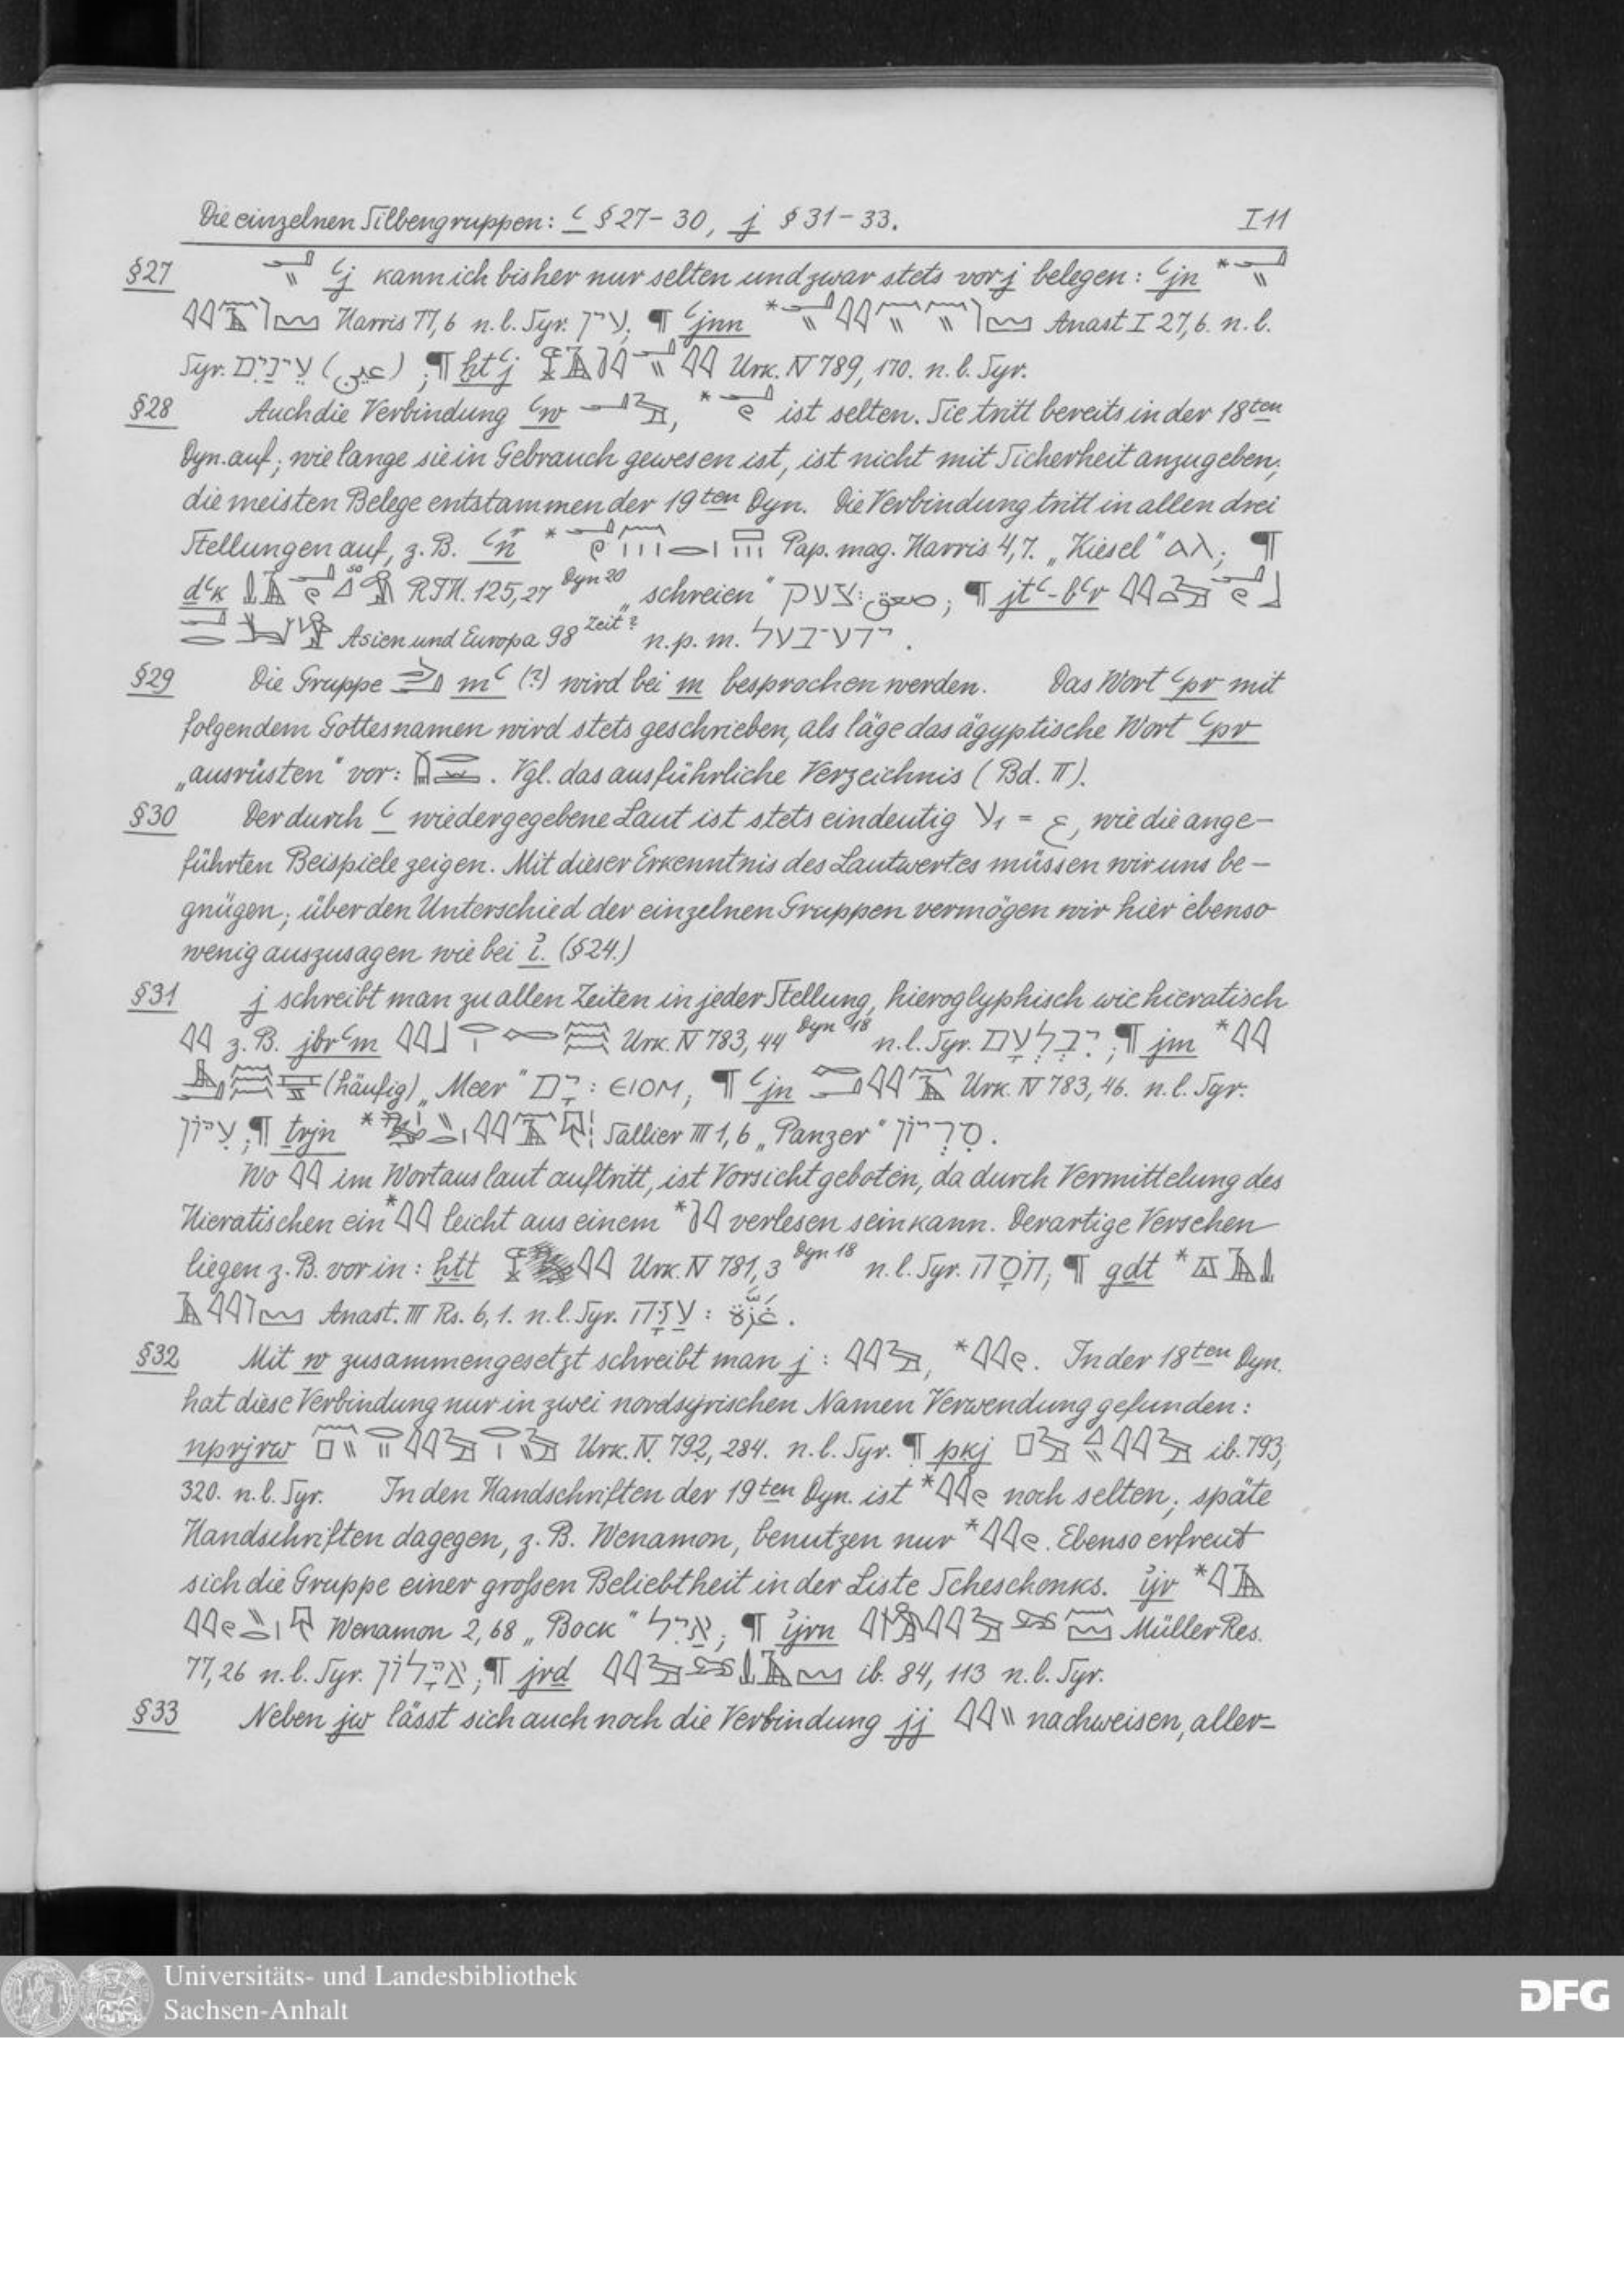 Die einzelnen Silbengruppen: ꜥ § 27-30, j § 31-33. I 11
§27 ꜥj kann ich bisher nur selten und zwar stets vor j belegen: ꜥjn *
Harris 77,6 n.l. Syr. עין; ¶ ꜥjnn * Anast I 27,6. n.l.
Syr. עינים (عين); ¶ ḫtꜥj Urk. IV 789, 170. n.l. Syr.
§28 Auch die Verbindung ꜥw , * ist selten. Sie tritt bereits in der 18ten
Dyn. auf; wie lange sie in Gebrauch gewesen ist, ist nicht mit Sicherheit anzugeben;
die meisten Belege entstammen der 19ten Dyn. Die Verbindung tritt in allen drei
Stellungen auf, z.B. * Pap. mag. Harris 4,7. „Kiesel“ ⲁⲗ; ¶
dꜥk so RTH. 125,27 Dyn 20 „schreien“ צעק: صعق; ¶ jtꜥ-bꜥr
Asien und Europa 98 Zeit? n.p.m. ידעבעל.
§29 Die Gruppe mꜥ (?) wird bei m besprochen werden. Das Wort ꜥpr mit
folgendem Gottesnamen wird stets geschrieben, als läge das ägyptische Wort ꜥpr
„ausrüsten“ vor: . Vgl. das ausführliche Verzeichnis (Bd. II).
§30 Der durch ꜥ wiedergegebene Laut ist stets eindeutig ע1 = ع, wie die ange-
führten Beispiele zeigen. Mit dieser Erkenntnis des Lautwertes müssen wir uns be-
gnügen; über den Unterschied der einzelnen Gruppen vermögen wir hier ebenso
wenig auszusagen wie bei ꞽ. (§24.)
§31 j schreibt man zu allen Zeiten in jeder Stellung, hieroglyphisch wie hieratisch
𓇋𓇋 z.B. jbrꜥm Urk. IV 783, 44 Dyn 18 n.l. Syr. יִבְלְעָם; ¶ jm *
(häufig) „Meer“ יָם: ⲉⲓⲟⲙ; ¶ ꜥjn Urk. IV 783, 46. n.l. Syr.
עִיּוֹן; ¶ trjn * Sallier III 1,6 „Panzer“ סִרְיוֹן.
Wo 𓇋𓇋 im Wortauslaut auftritt, ist Vorsicht geboten, da durch Vermittelung des
Hieratischen ein *𓇋𓇋 leicht aus einem * verlesen sein kann. Derartige Versehen
liegen z.B. vor in: ḫtt Urk. IV 781, 3 Dyn 18 n.l. Syr. חֹסָה; ¶ gdt *
Anast. III Rs. 6, 1. n.l. Syr. עַזָּה: غَزّة.
§32 Mit w zusammengesetzt schreibt man j: 𓇋𓇋 , *𓇋𓇋 . In der 18ten Dyn.
hat diese Verbindung nur in zwei nordsyrischen Namen Verwendung gefunden:
nprjrw Urk. IV. 792, 284. n.l. Syr. ¶ pkj ib. 793,
320. n.l. Syr. In den Handschriften der 19ten Dyn. ist *𓇋𓇋 noch selten; späte
Handschriften dagegen, z.B. Wenamon, benutzen nur *𓇋𓇋 . Ebenso erfreut
sich die Gruppe einer großen Beliebtheit in der Liste Scheschonks. ꞽjr *
Wenamon 2,68 „Bock“ אַיִל; ¶ ꞽjrn Müller Res.
77, 26 n.l. Syr. אַיָּלוֹן; ¶ jrd ib. 84, 113 n.l. Syr.
§33 Neben jw lässt sich auch noch die Verbindung jj 𓇋𓇋 nachweisen, aller-
Universitäts- und Landesbibliothek
Sachsen-Anhalt
DFG